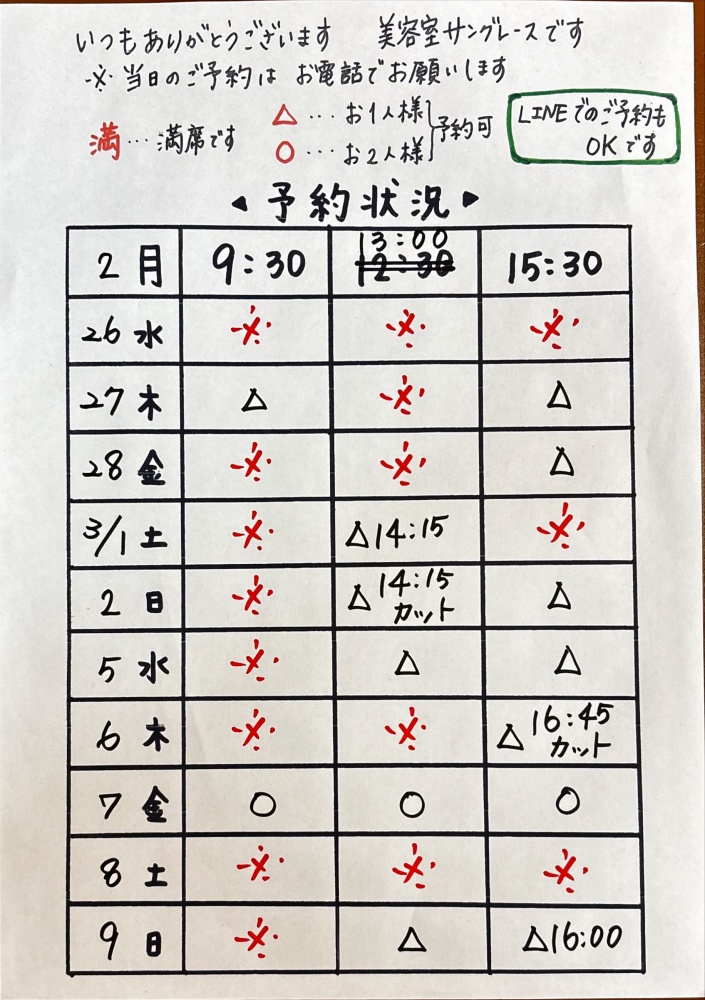 いつもありがとうございます 美容室サングレースです
※当日のご予約は お電話でお願いします
満…満席です
△…お1人様
○…お2人様
予約可
LINEでのご予約も
OKです
◀予約状況▶
2月 9:30 13:00 12:30 15:30
26 水 ※ ※ ※
27 木 △ ※ △
28 金 ※ ※ △
3/1 土 ※ △14:15 ※
2 日 ※ △14:15 カット △
5 水 ※ △ △
6 木 ※ ※ △16:45 カット
7 金 ○ ○ ○
8 土 ※ ※ ※
9 日 ※ △ △16:00